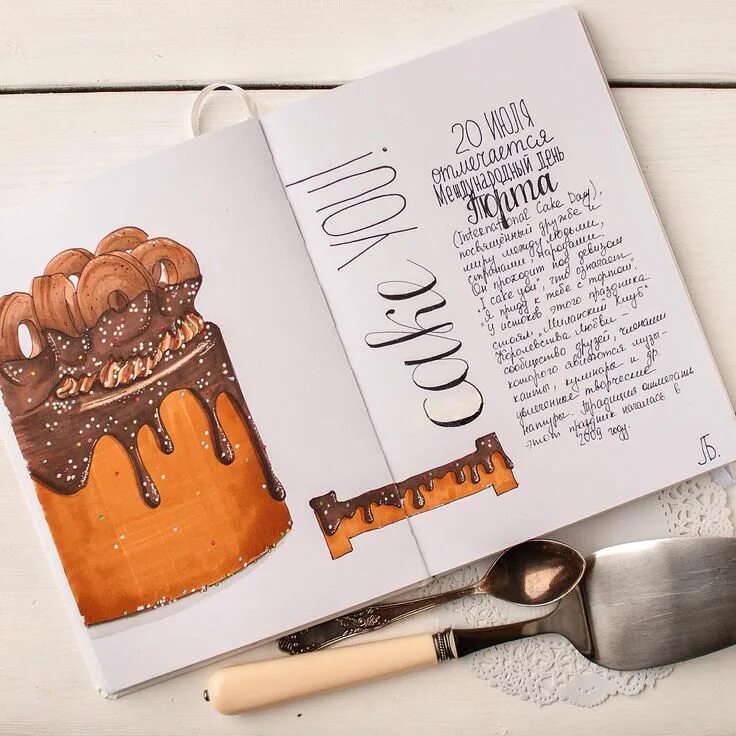 I
cake
you!
20 ИЮЛЯ
отмечается
Международный день
Торта
(International Cake Day),
посвящённый дружбе и
миру между людьми,
странами, народами.
Он проходит под девизом
"I cake you", что означает
"Я приду к тебе с тортом".
У истоков этого праздника
стоял "Миланский клуб"
Королевства Любви -
сообщество друзей, членами
которого являются музы-
канты, кулинары и др.
увлечённые творческие
натуры. Традиция отмечать
этот праздник началась в
2009 году.
ЛБ.